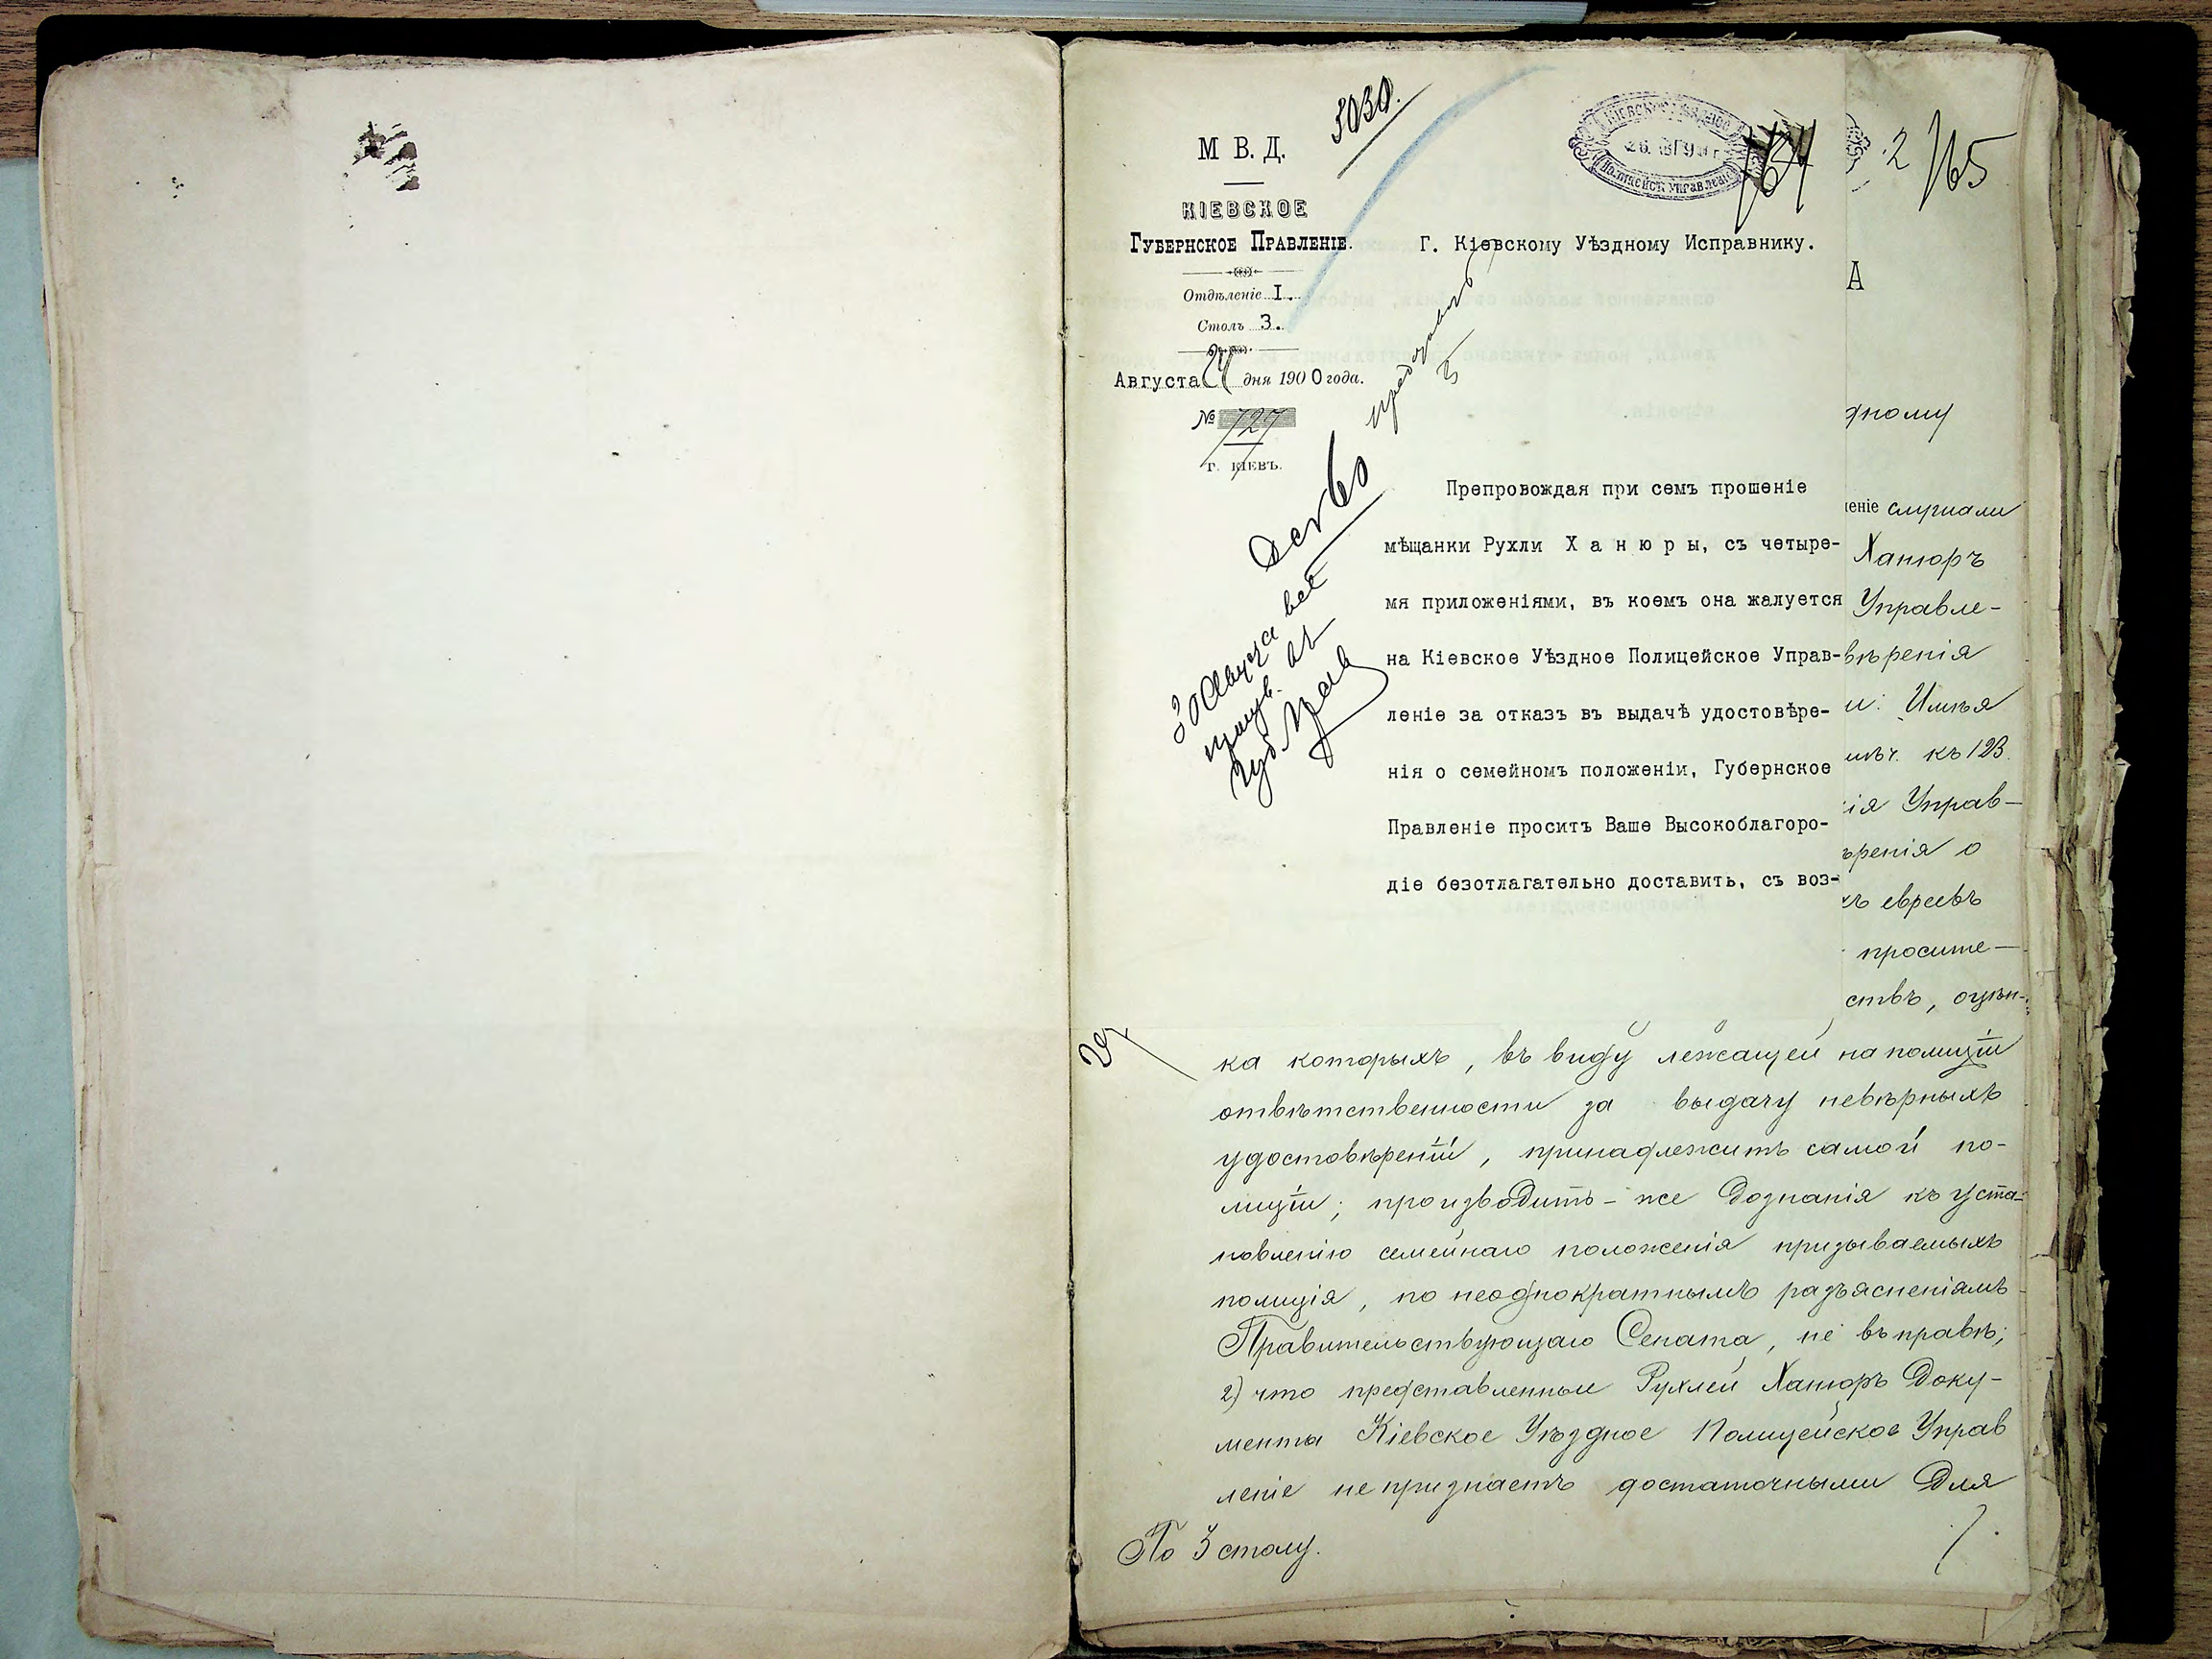 5030.
М В. Д.
КІЕВСКОЕ
ГУБЕРНСКОЕ ПРАВЛЕНІЕ.
Отдѣленіе I.
Столъ 3.
Августа 24 дня 1900 года.
№ 727
Г. КІЕВЪ.
764
2 765
Г. Кіевскому Уѣздному Исправнику.
А
дному
Препровождая при семъ прошеніе
мѣщанки Рухли Х а н ю р ы, съ четыре-
мя приложеніями, въ коемъ она жалуется
на Кіевское Уѣздное Полицейское Управ-
леніе за отказъ въ выдачѣ удостовѣре-
нія о семейномъ положеніи, Губернское
Правленіе проситъ Ваше Высокоблагоро-
діе безотлагательно доставить, съ воз-
еніе слушали
Ханюръ
Управле-
вѣренія
и: Имѣя
къ 123.
ія Управ-
ѣренія о
хъ евреевъ
просите-
ствъ, оцѣн-
ка которыхъ, въ виду лежащей на полиціи
отвѣтственности за выдачу невѣрныхъ
удостовѣреній, принадлежитъ самой по-
лиціи; производить-же дознанія къ уста-
новленію семейнаго положенія призываемыхъ
полиція, по неоднократнымъ разъясненіямъ
Правительствующаго Сената, не въ правѣ;
2) что представленные Рухлей Ханюръ доку-
менты Кіевское Уѣздное Полицейское Управ
леніе не признаетъ достаточными для
По 3 столу.